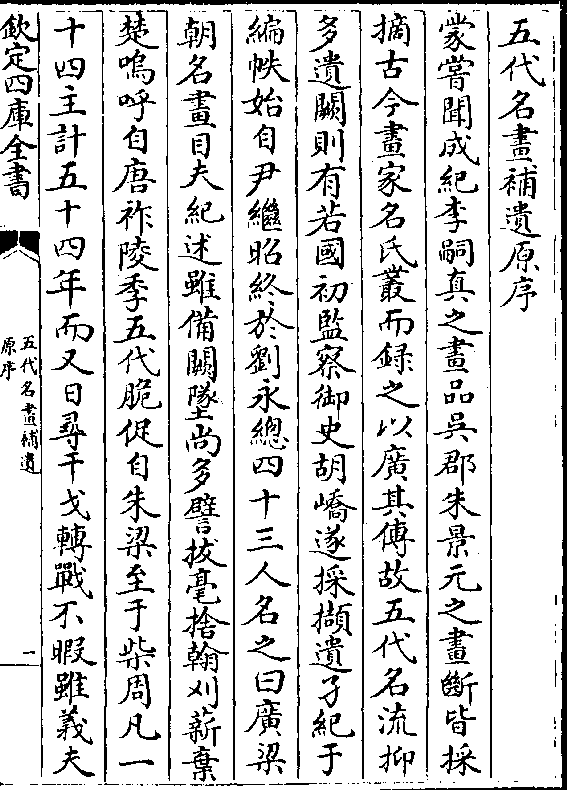 五代名畫補遺原序
蒙嘗聞成紀李嗣真之畫品吳郡朱景元之畫斷皆採
摘古今畫家名氏叢而録之以廣其傳故五代名流抑
多遺闕則有若國初監察御史胡嶠遂採擷遺孑紀于
編帙始自尹繼昭終於劉永總四十三人名之曰廣梁
朝名畫目夫紀述雖備闕墜尚多譬拔毫捨翰刈薪棄
楚嗚呼自唐祚陵季五代脆促自朱梁至于柴周凡一
十四主計五十四年而又日尋干戈轉戰不暇雖義夫
欽定四庫全書
五代名畫補遺
原序
一